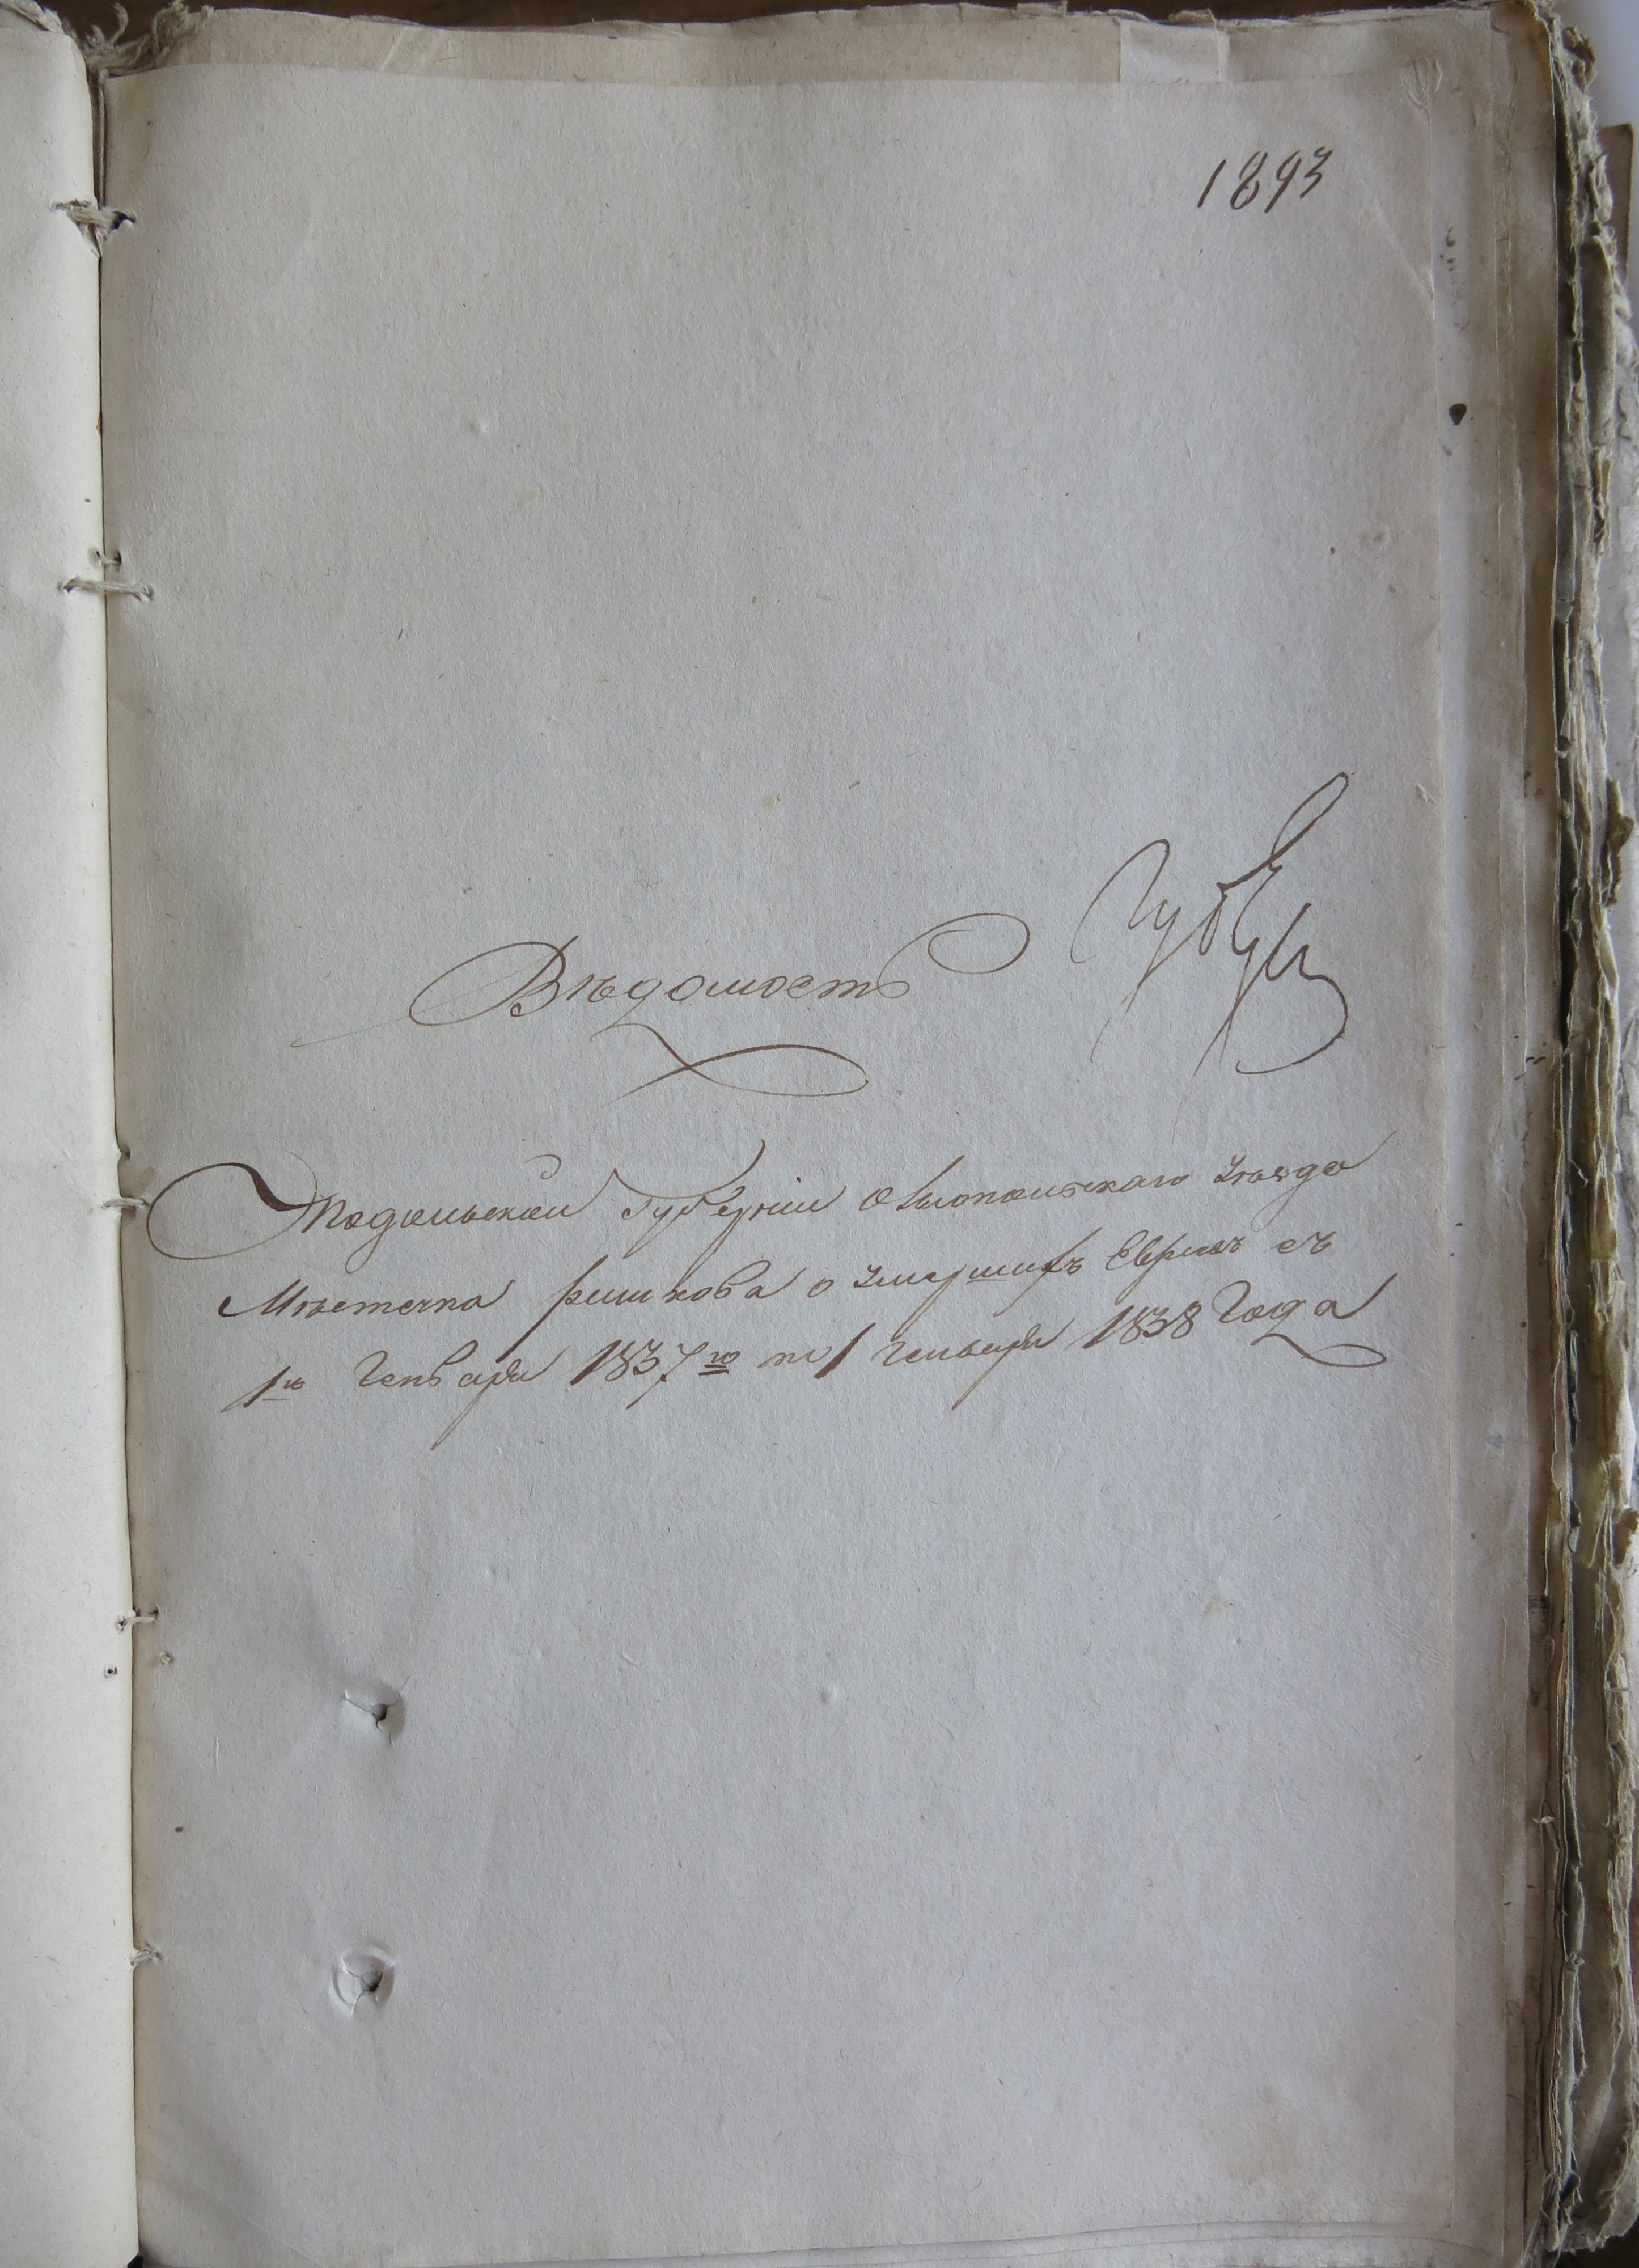 1893
Губер
Вѣдомость
Подольской Губерніи Ольгопольскаго уѣзда
Мѣстечка рашкова о умершихъ Евреяхъ съ
1го Генваря 1837го по 1 Генваря 1838 Года